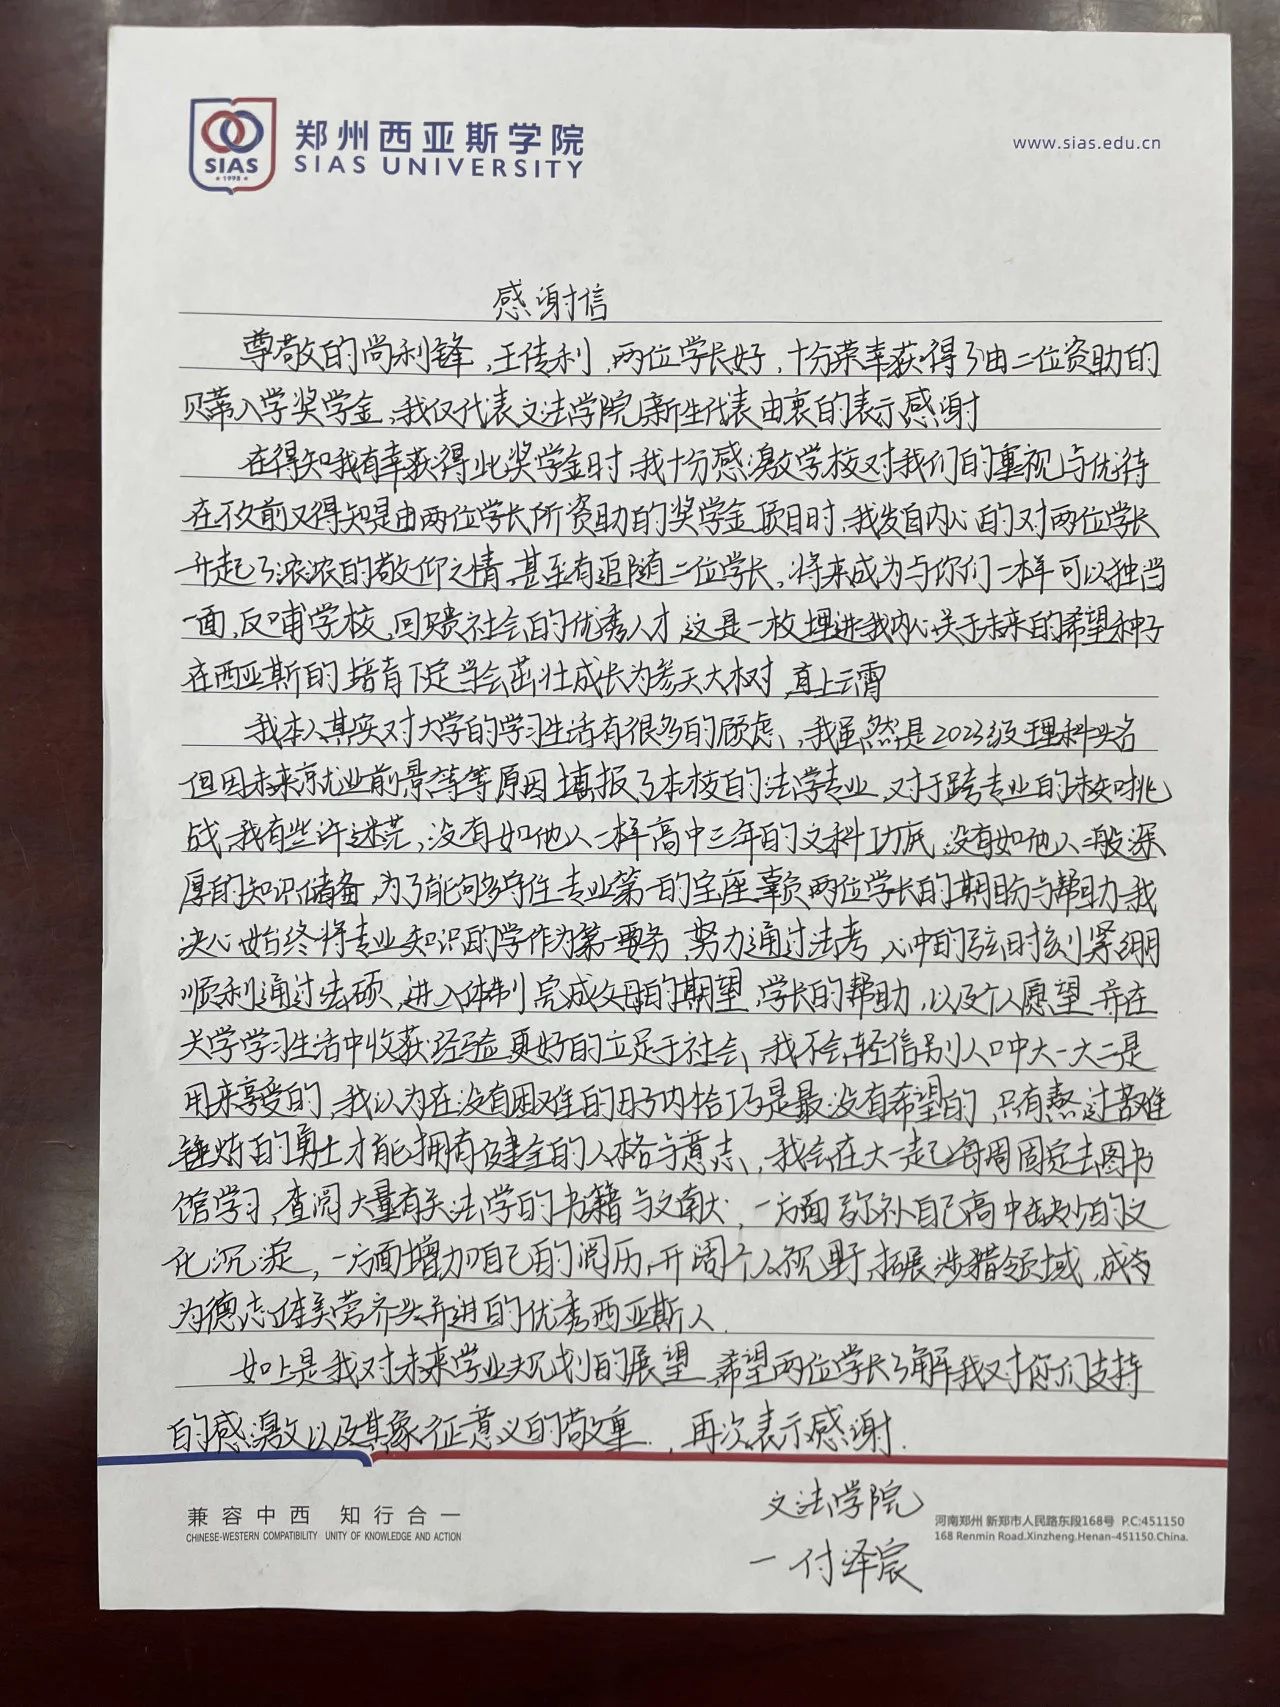 郑州西亚斯学院
SIAS UNIVERSITY
SIAS
1998
www.sias.edu.cn
感谢信
尊敬的尚利锋,王传利,两位学长好,十分荣幸获得了由二位资助的
贝蒂入学奖学金,我仅代表文法学院新生代表由衷的表示感谢
在得知我有幸获得此奖学金时,我十分感激学校对我们的重视与优待
在不久前又得知是由两位学长所资助的奖学金项目时,我发自内心的对两位学长
升起了浓浓的敬仰之情,甚至有追随二位学长,将来成为与你们一样可以独当
一面,反哺学校,回馈社会的优秀人才,这是一枚埋进我内心关于未来的希望种子
在西亚斯的培育下定当会茁壮成长为参天大树,直上云霄
我本人其实对大学的学习生活有很多的顾虑,我虽然是2023级理科头名
但因未来就业前景等等原因填报了本校的法学专业,对于跨专业的挑
战,我有些许迷茫,没有如他人一样高中三年的文科功底,没有如他人一般深
厚的知识储备,为了能够守住专业第一的宝座辜负两位学长的期盼与帮助,我
决心始终将专业知识的学作为第一要务,努力通过法考,心中的弦时刻紧绷
顺利通过法硕,进入体制完成父母的期望,学长的帮助,以及个人愿望,并在
大学学习生活中收获经验更好的立足于社会,我不会轻信别人口中大一大二是
用来享受的,我认为在没有困难的日子内恰巧是最没有希望的,只有熬过苦难
锤炼的勇士才能拥有健全的人格与意志,我会在大一起每周固定去图书
馆学习,查阅大量有关法学的书籍与文献,一方面弥补自己高中缺少的文
化沉淀,一方面增加自己的阅历,开阔个人视野,拓展涉猎领域,成
为德志体美劳齐头并进的优秀西亚斯人.
如上是我对未来学业规划的展望,希望两位学长了解我对你们支持
的感激以及其象征意义的敬重.,再次表示感谢.
文法学院
一付泽宸
兼容中西 知行合一
CHINESE-WESTERN COMPATIBILITY UNITY OF KNOWLEDGE AND ACTION
河南郑州 新郑市人民路东段168号 P.C:451150
168 Renmin Road.Xinzheng.Henan-451150.China.